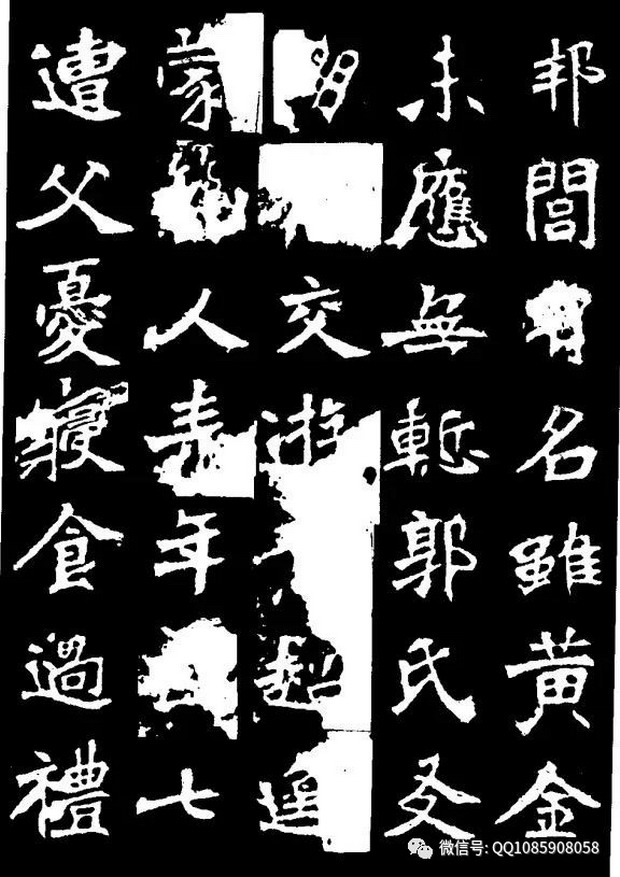 邦閭有名雖黃金
未應無慙郭氏友
交遊超遥
蒙人表年七
遭父憂寢食過禮
微信号: QQ1085908058